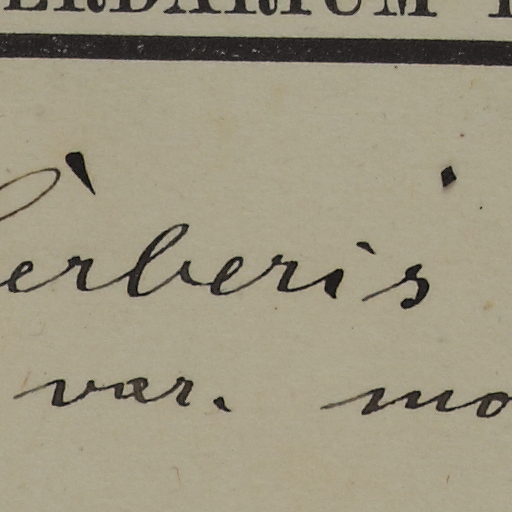 ERBARIUM
erberis
var. mo